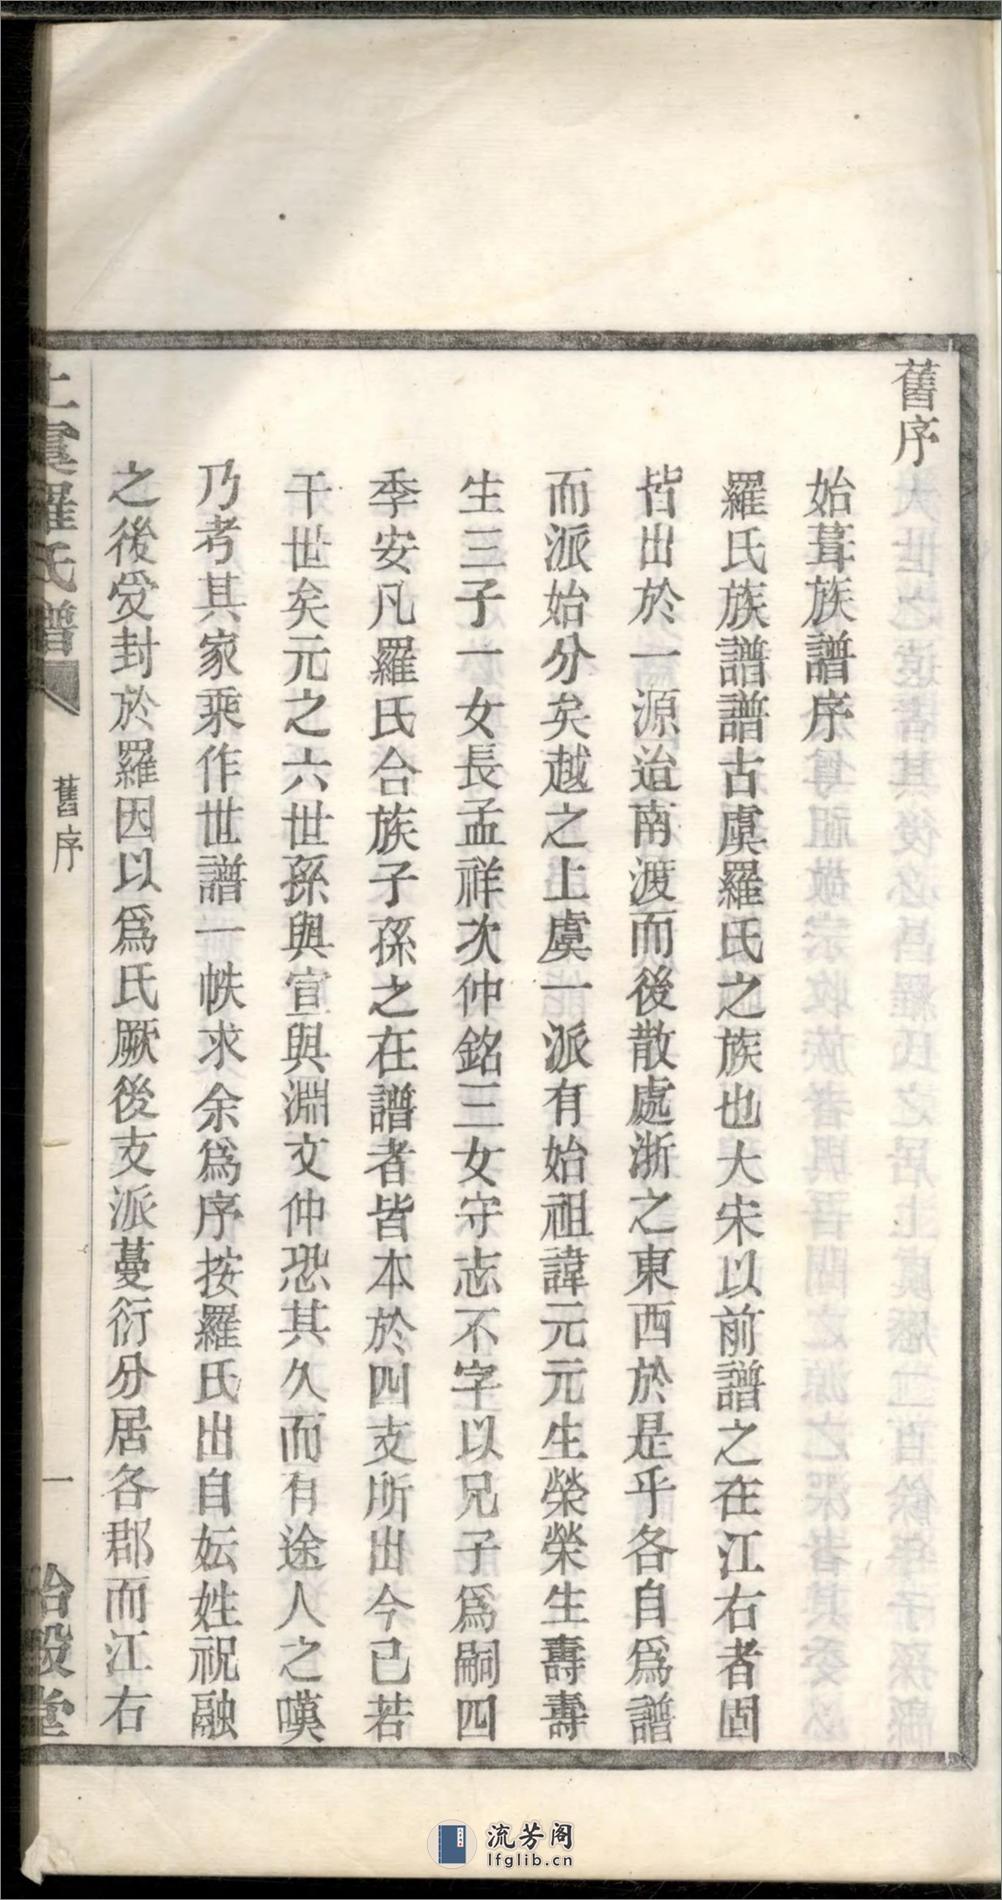 舊序
始葺族譜序
羅氏族譜譜古虞羅氏之族也大宋以前譜之在江右者固
皆出於一源迨南渡而後散處浙之東西於是乎各自爲譜
而派始分矣越之上虞一派有始祖諱元元生榮榮生壽壽
生三子一女長孟祥次仲銘三女守志不字以兄子爲嗣四
季安凡羅氏合族子孫之在譜者皆本於四支所出今已若
干世矣元之六世孫與宣與淵文仲恐其久而有途人之嘆
乃考其家乘作世譜一帙求余爲序按羅氏出自妘姓祝融
之後受封於羅因以爲氏厥後支派蔓衍分居各郡而江右
上虞羅氏譜
舊序
一
貽穀堂
流芳阁
lfglib.cn